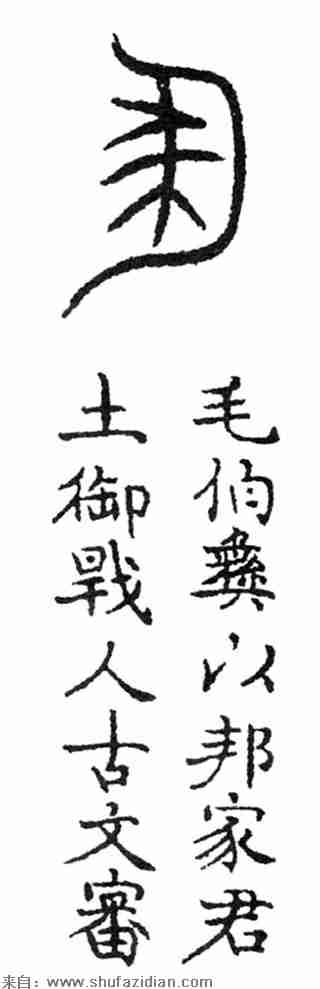 毛伯彝以邦家君
土御戰人古文審
来自：www.shufazidian.com